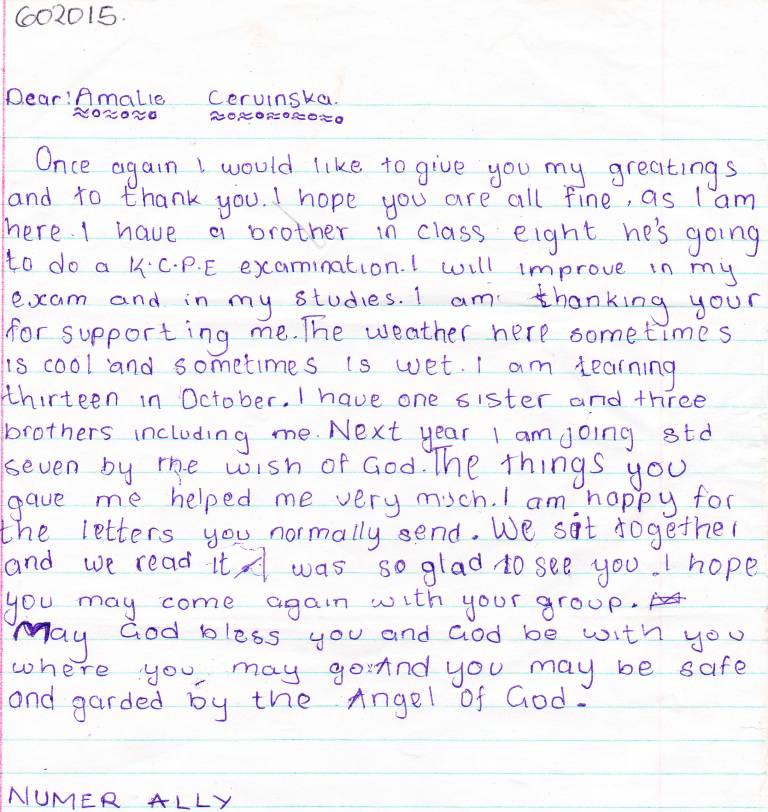 602015.
Dear: Amalie Cervinska.
Once again I would like to give you my greatings
and to thank you. I hope you are all fine, as I am
here. I have a brother in class eight he's going
to do a K.C.P.E examination. I will improve in my
exam and in my studies. I am thanking your
for supporting me. The weather here sometimes
is cool and sometimes is wet. I am tearning
thirteen in October. I have one sister and three
brothers including me. Next year I am joing std
seven by the wish of God. The things you
gave me helped me very much. I am happy for
the letters you normally send. We sit together
and we read it. I was so glad to see you. I hope
you may come again with your group.
May God bless you and God be with you
where you may go. And you may be safe
and garded by the Angel of God.
NUMER ALLY